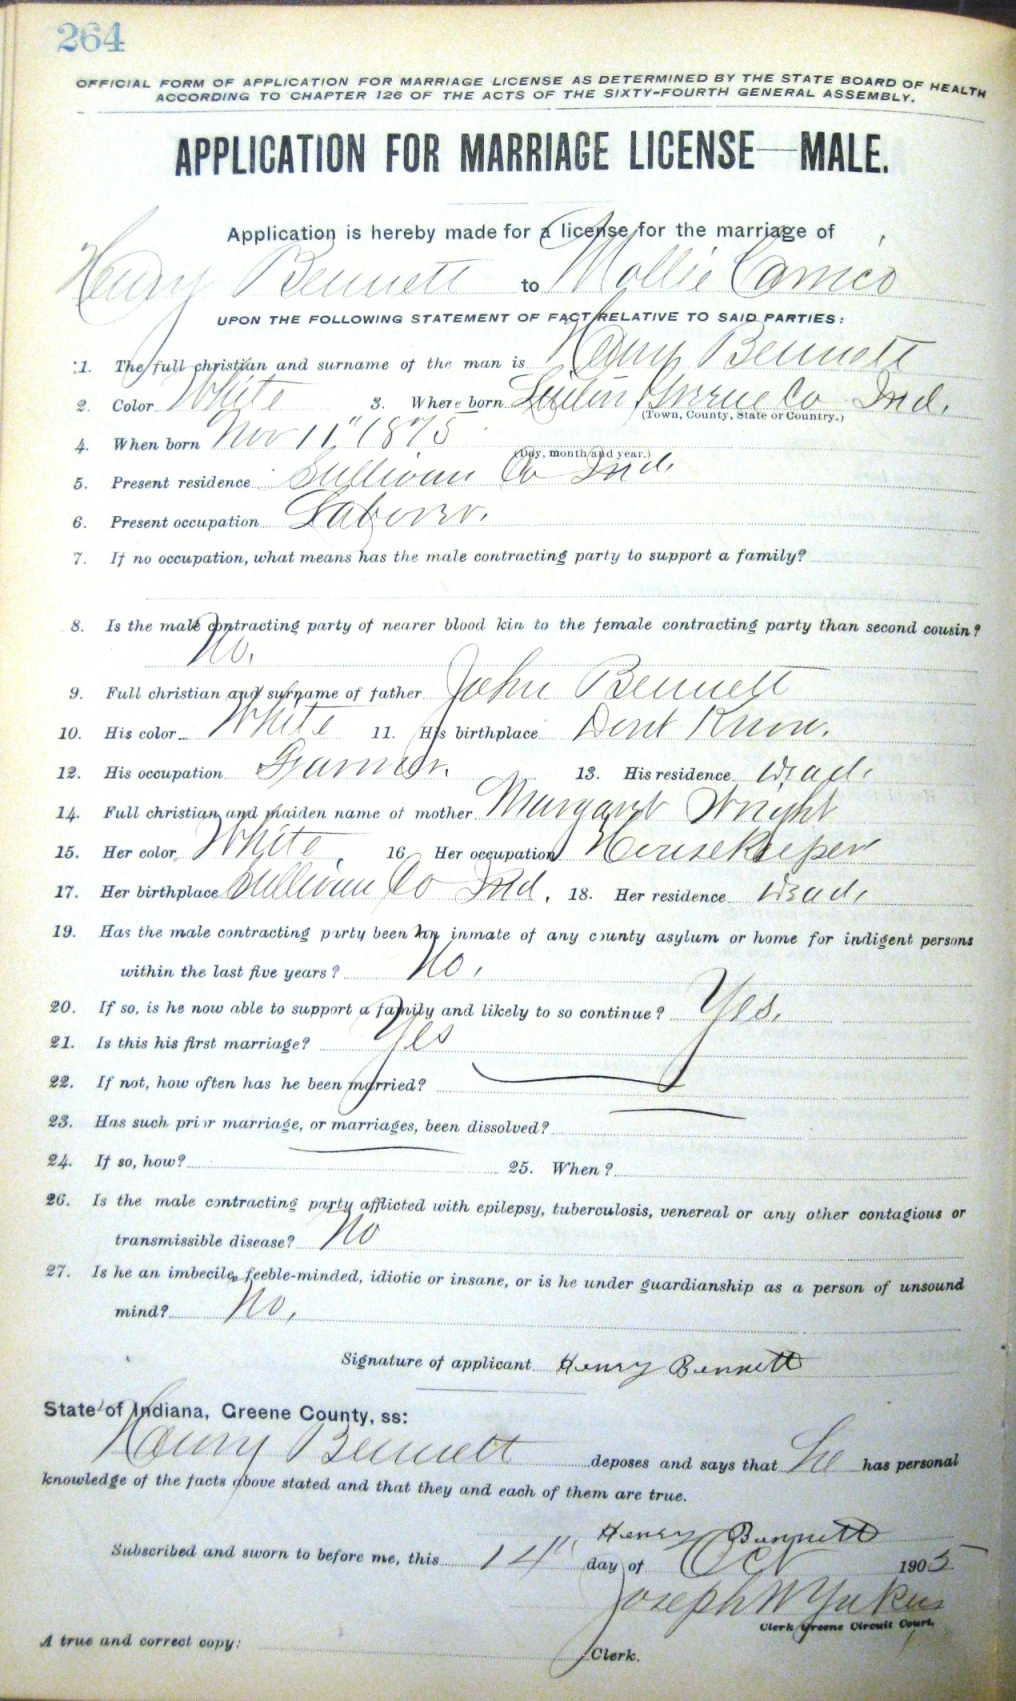 264
OFFICIAL FORM OF APPLICATION FOR MARRIAGE LICENSE AS DETERMINED BY THE STATE BOARD OF HEALTH
ACCORDING TO CHAPTER 126 OF THE ACTS OF THE SIXTY-FOURTH GENERAL ASSEMBLY.
APPLICATION FOR MARRIAGE LICENSE—MALE.
Application is hereby made for a license for the marriage of
Henry Bennett to Mollie Carrico
UPON THE FOLLOWING STATEMENT OF FACT RELATIVE TO SAID PARTIES:
1. The full christian and surname of the man is Henry Bennett
2. Color White 3. Where born Linton, Greene Co Ind.
(Town, County, State or Country.)
4. When born Nov 11" 1875
(Day, month and year.)
5. Present residence Sullivan Co Ind.
6. Present occupation Laborer.
7. If no occupation, what means has the male contracting party to support a family?
8. Is the male contracting party of nearer blood kin to the female contracting party than second cousin?
No.
9. Full christian and surname of father John Bennett
10. His color White 11. His birthplace Dont Know.
12. His occupation Farmer. 13. His residence Dead.
14. Full christian and maiden name of mother Margaret Wright
15. Her color White. 16 Her occupation Housekeeper
17. Her birthplace Sullivan Co Ind. 18. Her residence Dead.
19. Has the male contracting party been an inmate of any county asylum or home for indigent persons
within the last five years? No.
20. If so, is he now able to support a family and likely to so continue? Yes.
21. Is this his first marriage? Yes
22. If not, how often has he been married?
23. Has such prior marriage, or marriages, been dissolved?
24. If so, how? 25. When?
26. Is the male contracting party afflicted with epilepsy, tuberculosis, venereal or any other contagious or
transmissible disease? No
27. Is he an imbecile, feeble-minded, idiotic or insane, or is he under guardianship as a person of unsound
mind? No.
Signature of applicant Henry Bennett
State of Indiana, Greene County, ss:
Henry Bennett deposes and says that he has personal
knowledge of the facts above stated and that they and each of them are true.
Henry Bennett
Subscribed and sworn to before me, this 14" day of Oct 1905
Joseph W Yakey
Clerk Greene Circuit Court.
A true and correct copy: Clerk.